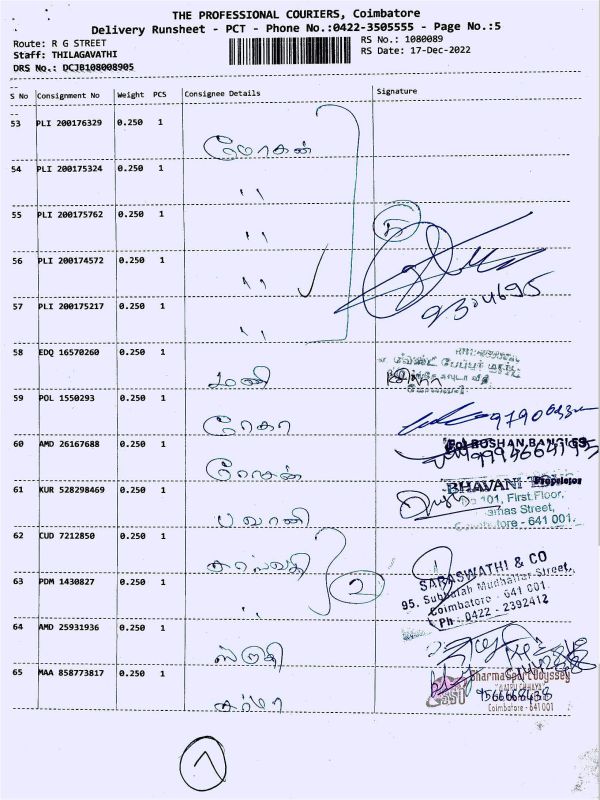 THE PROFESSIONAL COURIERS, Coimbatore
Delivery Runsheet - PCT - Phone No.:0422-3505555 - Page No.:5
Route: R G STREET
RS No.: 1080089
Staff: THILAGAVATHI
RS Date: 17-Dec-2022
DRS No.: DCJB108008905
S No Consignment No Weight PCS Consignee Details Signature
53 PLI 200176329 0.250 1 மோகன்
54 PLI 200175324 0.250 1 ''
55 PLI 200175762 0.250 1 '' 5
56 PLI 200174572 0.250 1 ''
57 PLI 200175217 0.250 1 ''
58 EDQ 16570260 0.250 1 மணி
59 POL 1550293 0.250 1 ரேகா
60 AMD 26167688 0.250 1 ரோசன்
ROSHAN BANGLES
61 KUR 528298469 0.250 1 பவானி
BHAVANI
Proprietor
101, First Floor,
Street,
Coimbatore - 641 001.
62 CUD 7212850 0.250 1 சரஸ்வதி
63 PDM 1430827 0.250 1 '' 2
SARASWATHI & CO
95. Subbaiah Mudhaliar Street,
Coimbatore - 641 001.
Ph : 0422 - 2392412
64 AMD 25931936 0.250 1 ஸ்ருதி
65 MAA 858773817 0.250 1 சர்மா
Sharma Sport Odyssey
Coimbatore - 641 001
7